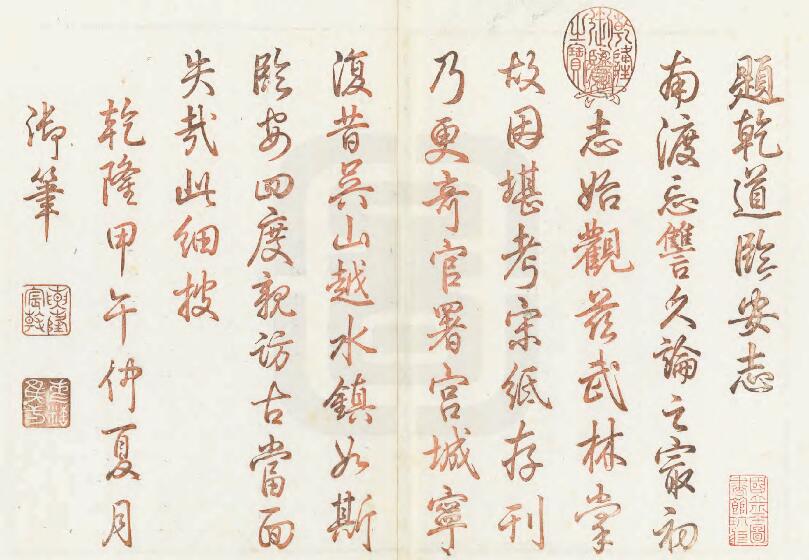 題乾道臨安志
南渡忘讐久論之㝡初
志始觀茲武林掌
故因堪考宋紙存刊
乃更奇官署宮城寧
復昔吳山越水鎮如斯
臨安四度親訪古當面
失哉此細披
乾隆甲午仲夏月
御筆
乾隆御覽之寶
乾隆宸翰